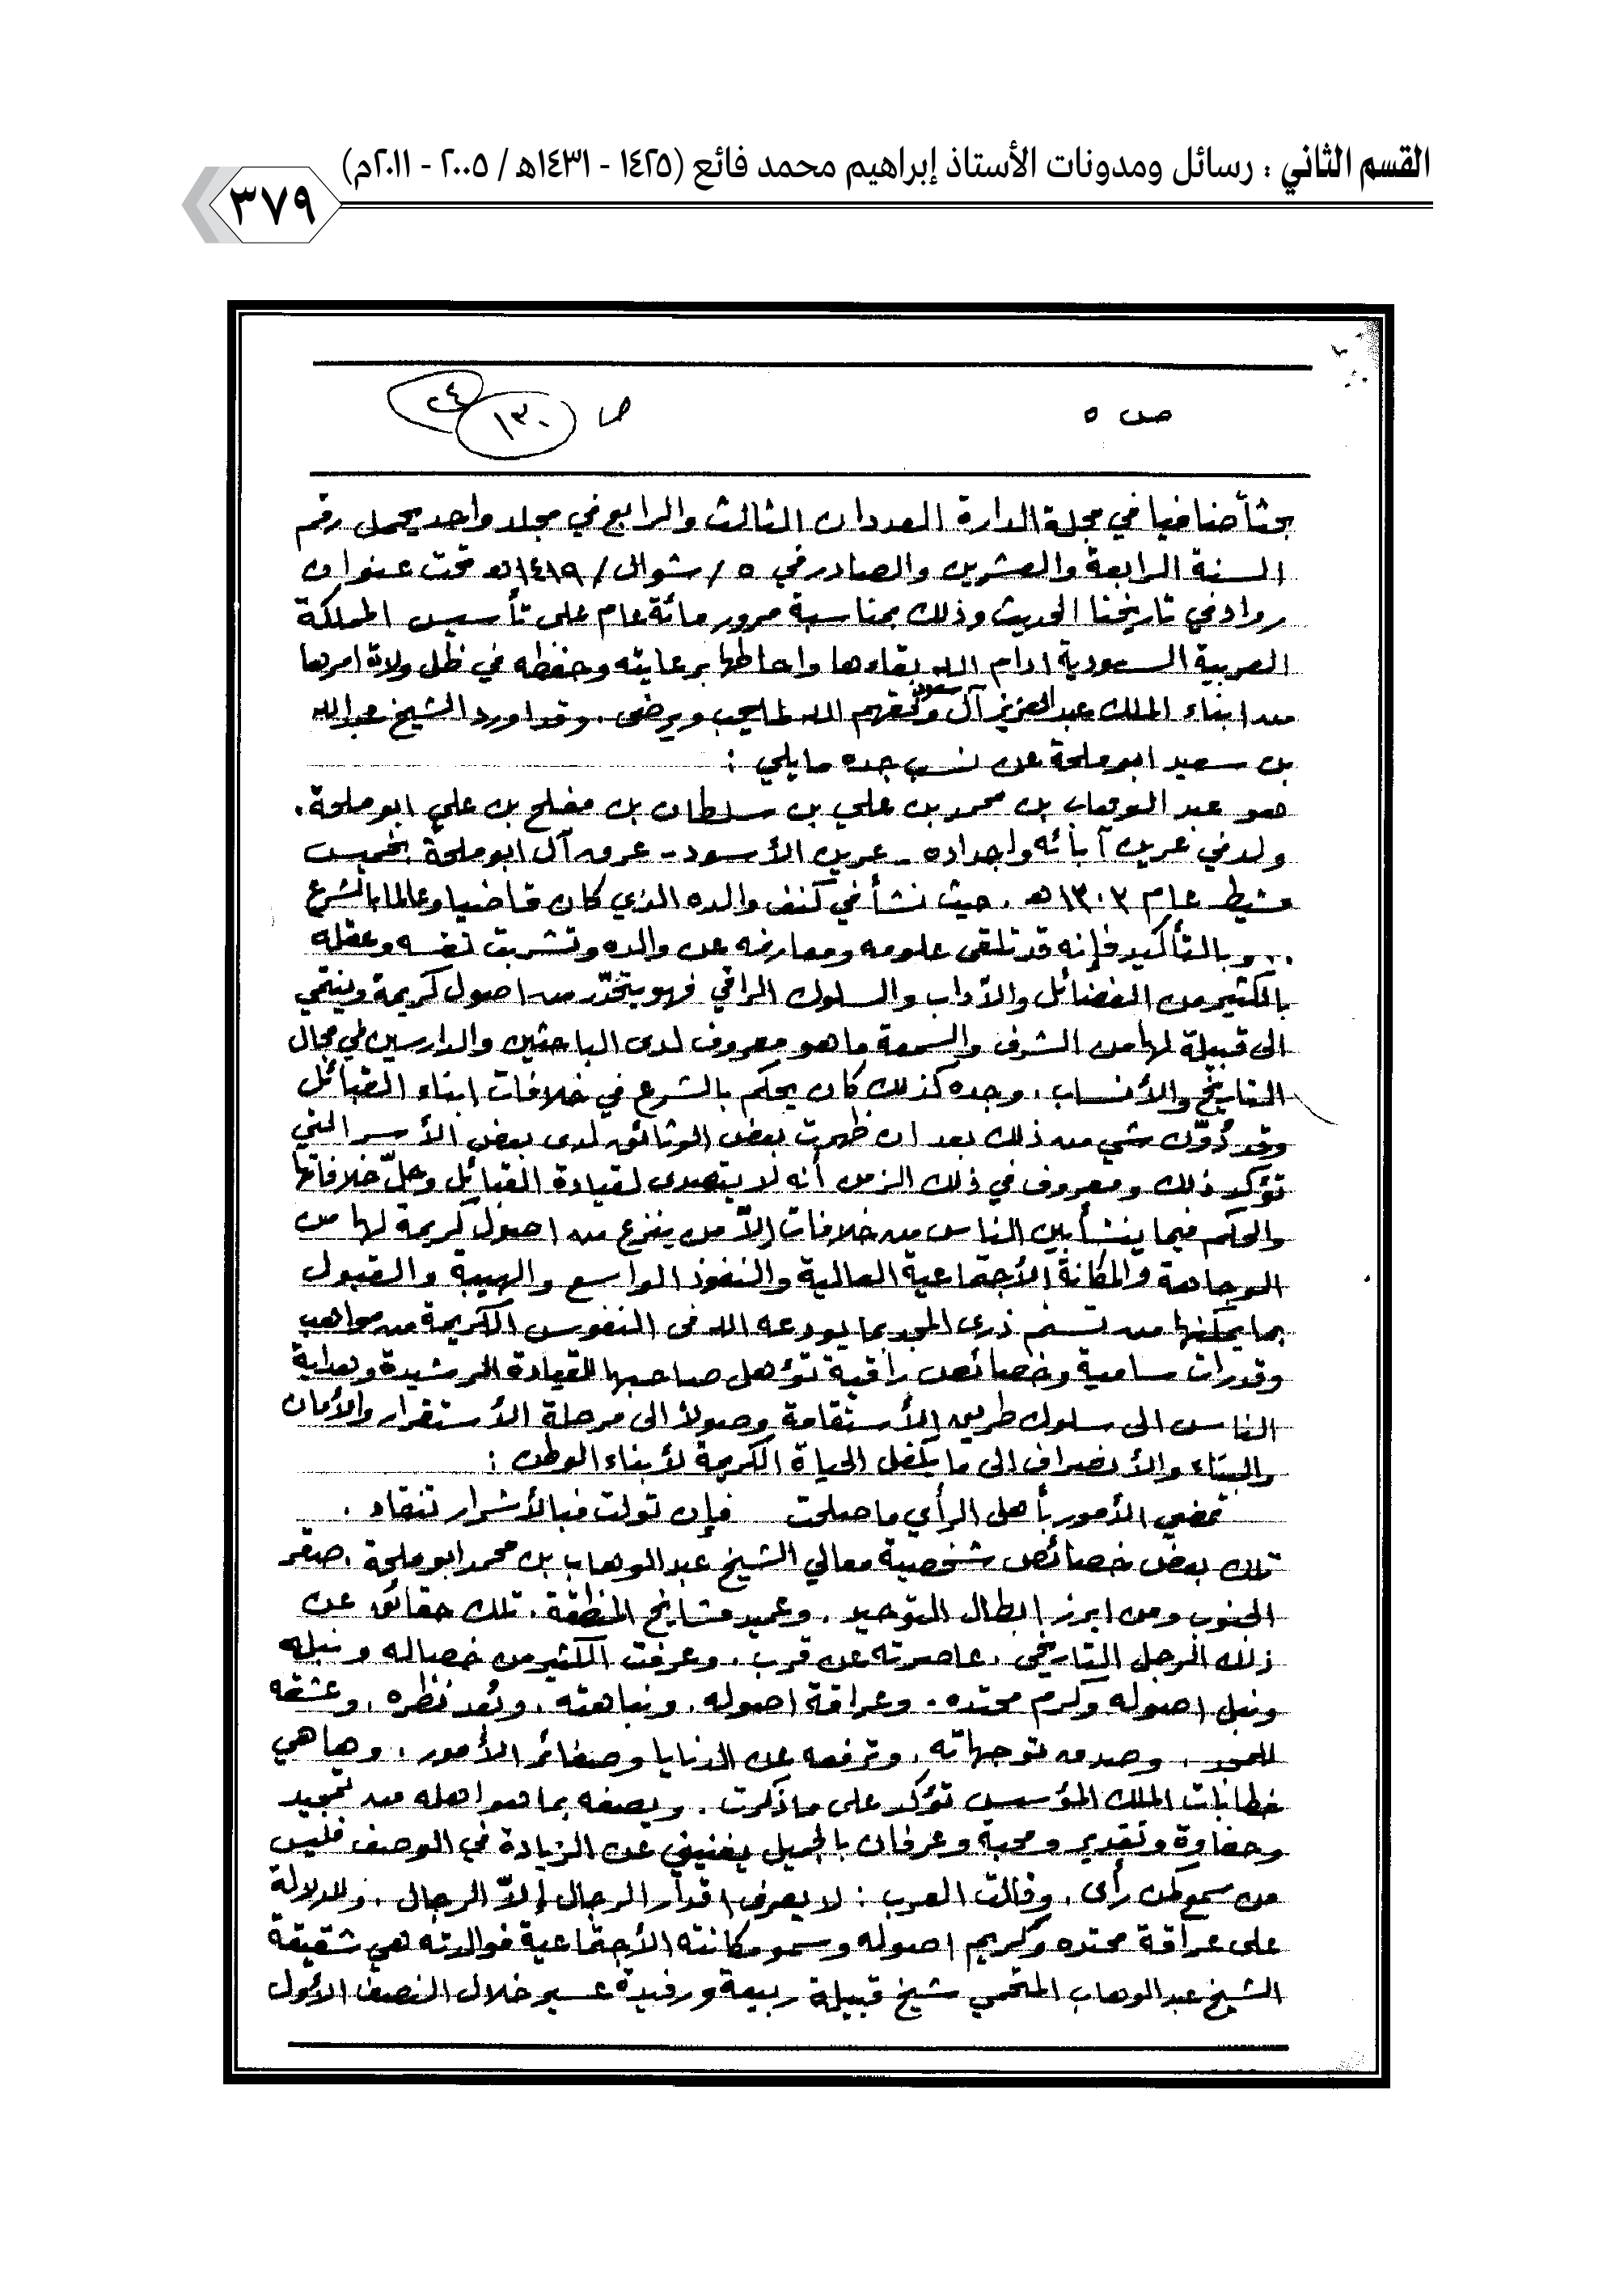 القسم الثاني : رسائل ومدونات الأستاذ إبراهيم محمد فائع (١٤٢٥ - ١٤٣١هـ / ٢٠٠٥ - ٢٠١١م)
٣٧٩
ص ٥ ص ١٣٠ ٢٤
بحثاً ضافيا في مجلة الدارة العددان الثالث والرابع في مجلد واحد يحمل رقم
السنة الرابعة والعشرين والصادر في ٥ / شوال / ١٤١٩هـ تحت عنوان
رواد في تاريخنا الحديث وذلك بمناسبة مرور مائة عام على تأسيس المملكة
العربية السعودية ادام الله بقاءها واحاطها برعايته وحفظه في ظل ولاة امرها
من ابناء الملك عبد العزيز آل سعود وفقهم الله لما يحب ويرضى . وقد اورد الشيخ عبد الله
بن سعيد ابو ملحة عن نسب جده ما يلي :
هو عبد الوهاب بن محمد بن علي بن سلطان بن مفلح بن علي ابو ملحة .
ولد في عرين آبائه واجداده - عرين الأسود - عرق آل ابو ملحة بخميس
مشيط عام ١٣٠٣هـ . حيث نشأ في كنف والده الذي كان قاضيا وعالما بالشرع
.. وبالتأكيد فإنه قد تلقى علومه ومعارفه عن والده وتشربت نفسه وعقله
بالكثير من الفضائل والآداب والسلوك الراقي فهو يتحدّر من اصول كريمة وينتمي
الى قبيلة لها من الشرف والسمعة ما هو معروف لدى الباحثين والدارسين في مجال
التاريخ والأنساب . وجده كذلك كان يحكم بالشرع في خلافات ابناء القبائل
وقد دُوّن شي من ذلك بعد ان ظهرت بعض الوثائق لدى بعض الأسر التي
تؤكد ذلك ومعروف في ذلك الزمن أنه لا يتصدى لقيادة القبائل وحلّ خلافاتها
والحكم فيما ينشأ بين الناس من خلافات إلاّ من ينزع من اصول كريمة لها من
الوجاهة والمكانة الأجتماعية العالية والنفوذ الواسع والهيبة والقبول
بما يمكنها من تسنم ذرى المجد بما يودعه الله في النفوس الكريمة من مواهب
وقدرات سامية وخصائص راقية تؤهل صاحبها للقيادة الرشيدة وهداية
الناس الى سلوك طريق الأستقامة وصولاً الى مرحلة الأستقرار والأمان
والبناء والأنصراف الى ما يكفل الحياة الكريمة لأبناء الوطن :
تمضي الأمور بأهل الرأي ما صلحت فإن تولت فبالأشرار تنقاد .
تلك بعض خصائص شخصية معالي الشيخ عبد الوهاب بن محمد ابو ملحة . صقر
الجنوب ومن ابرز ابطال التوحيد . وعميد مشائخ المنطقة . تلك حقائق عن
ذلك الرجل التاريخي . عاصرته عن قرب . وعرفت الكثير من خصاله ونبله
ونبل اصوله وكرم محتده . وعراقة اصوله . ونباهته . وبُعد نظره . وعشقه
للمجد . وصدق توجهاته . وترفعه عن الدنايا وصغائر الأمور . وها هي
خطابات الملك المؤسس تؤكد على ما ذكرت . ويصفه بما هو اهله من تمجيد
وحفاوة وتقدير ومحبة وعرفان بالجميل يغنيني عن الزيادة في الوصف فليس
من سمع كمن رأى . وقالت العرب : لا يعرف اقدار الرجال إلاّ الرجال . وللدلالة
على عراقة محتده وكريم اصوله وسمو مكانته الأجتماعية فوالدته هي شقيقة
الشيخ عبد الوهاب المتحمي شيخ قبيلة ربيعة ورفيدة عسير خلال النصف الأول